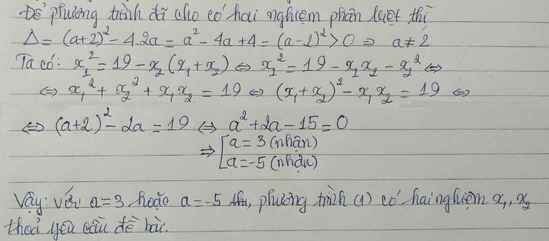 Để phương trình đã cho có hai nghiệm phân biệt thì
Δ = (a+2)² - 4.2a = a² - 4a + 4 = (a-2)² > 0 ⇒ a ≠ 2
Ta có: x₁² = 19 - x₂(x₁ + x₂) ⇔ x₁² = 19 - x₁x₂ - x₂² ⇔
⇔ x₁² + x₂² + x₁x₂ = 19 ⇔ (x₁ + x₂)² - x₁x₂ = 19 ⇔
⇔ (a+2)² - 2a = 19 ⇔ a² + 2a - 15 = 0
⇒ [ a = 3 (nhận)
a = -5 (nhận)
Vậy: với a = 3 hoặc a = -5 thì, phương trình (1) có hai nghiệm x₁, x₂
thoả yêu cầu đề bài.